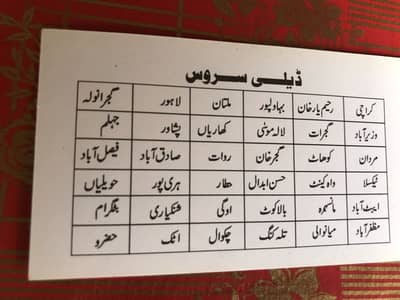 ڈیلی سروس
کراچی رحیم یار خان بہاولپور ملتان لاہور گجرانولہ
وزیر آباد گجرات لالہ موسٰی کھاریاں پشاور جہلم
مردان کوھاٹ گجر خان روات صادق آباد فیصل آباد
ٹیکسلا واہ کینٹ حسن ابدال حطار ہری پور حویلیاں
ایبٹ آباد مانسہرہ بالا کوٹ اوگی شنکیاری بٹگرام
مظفر آباد میانوالی تلہ گنگ چکوال اٹک حضرو